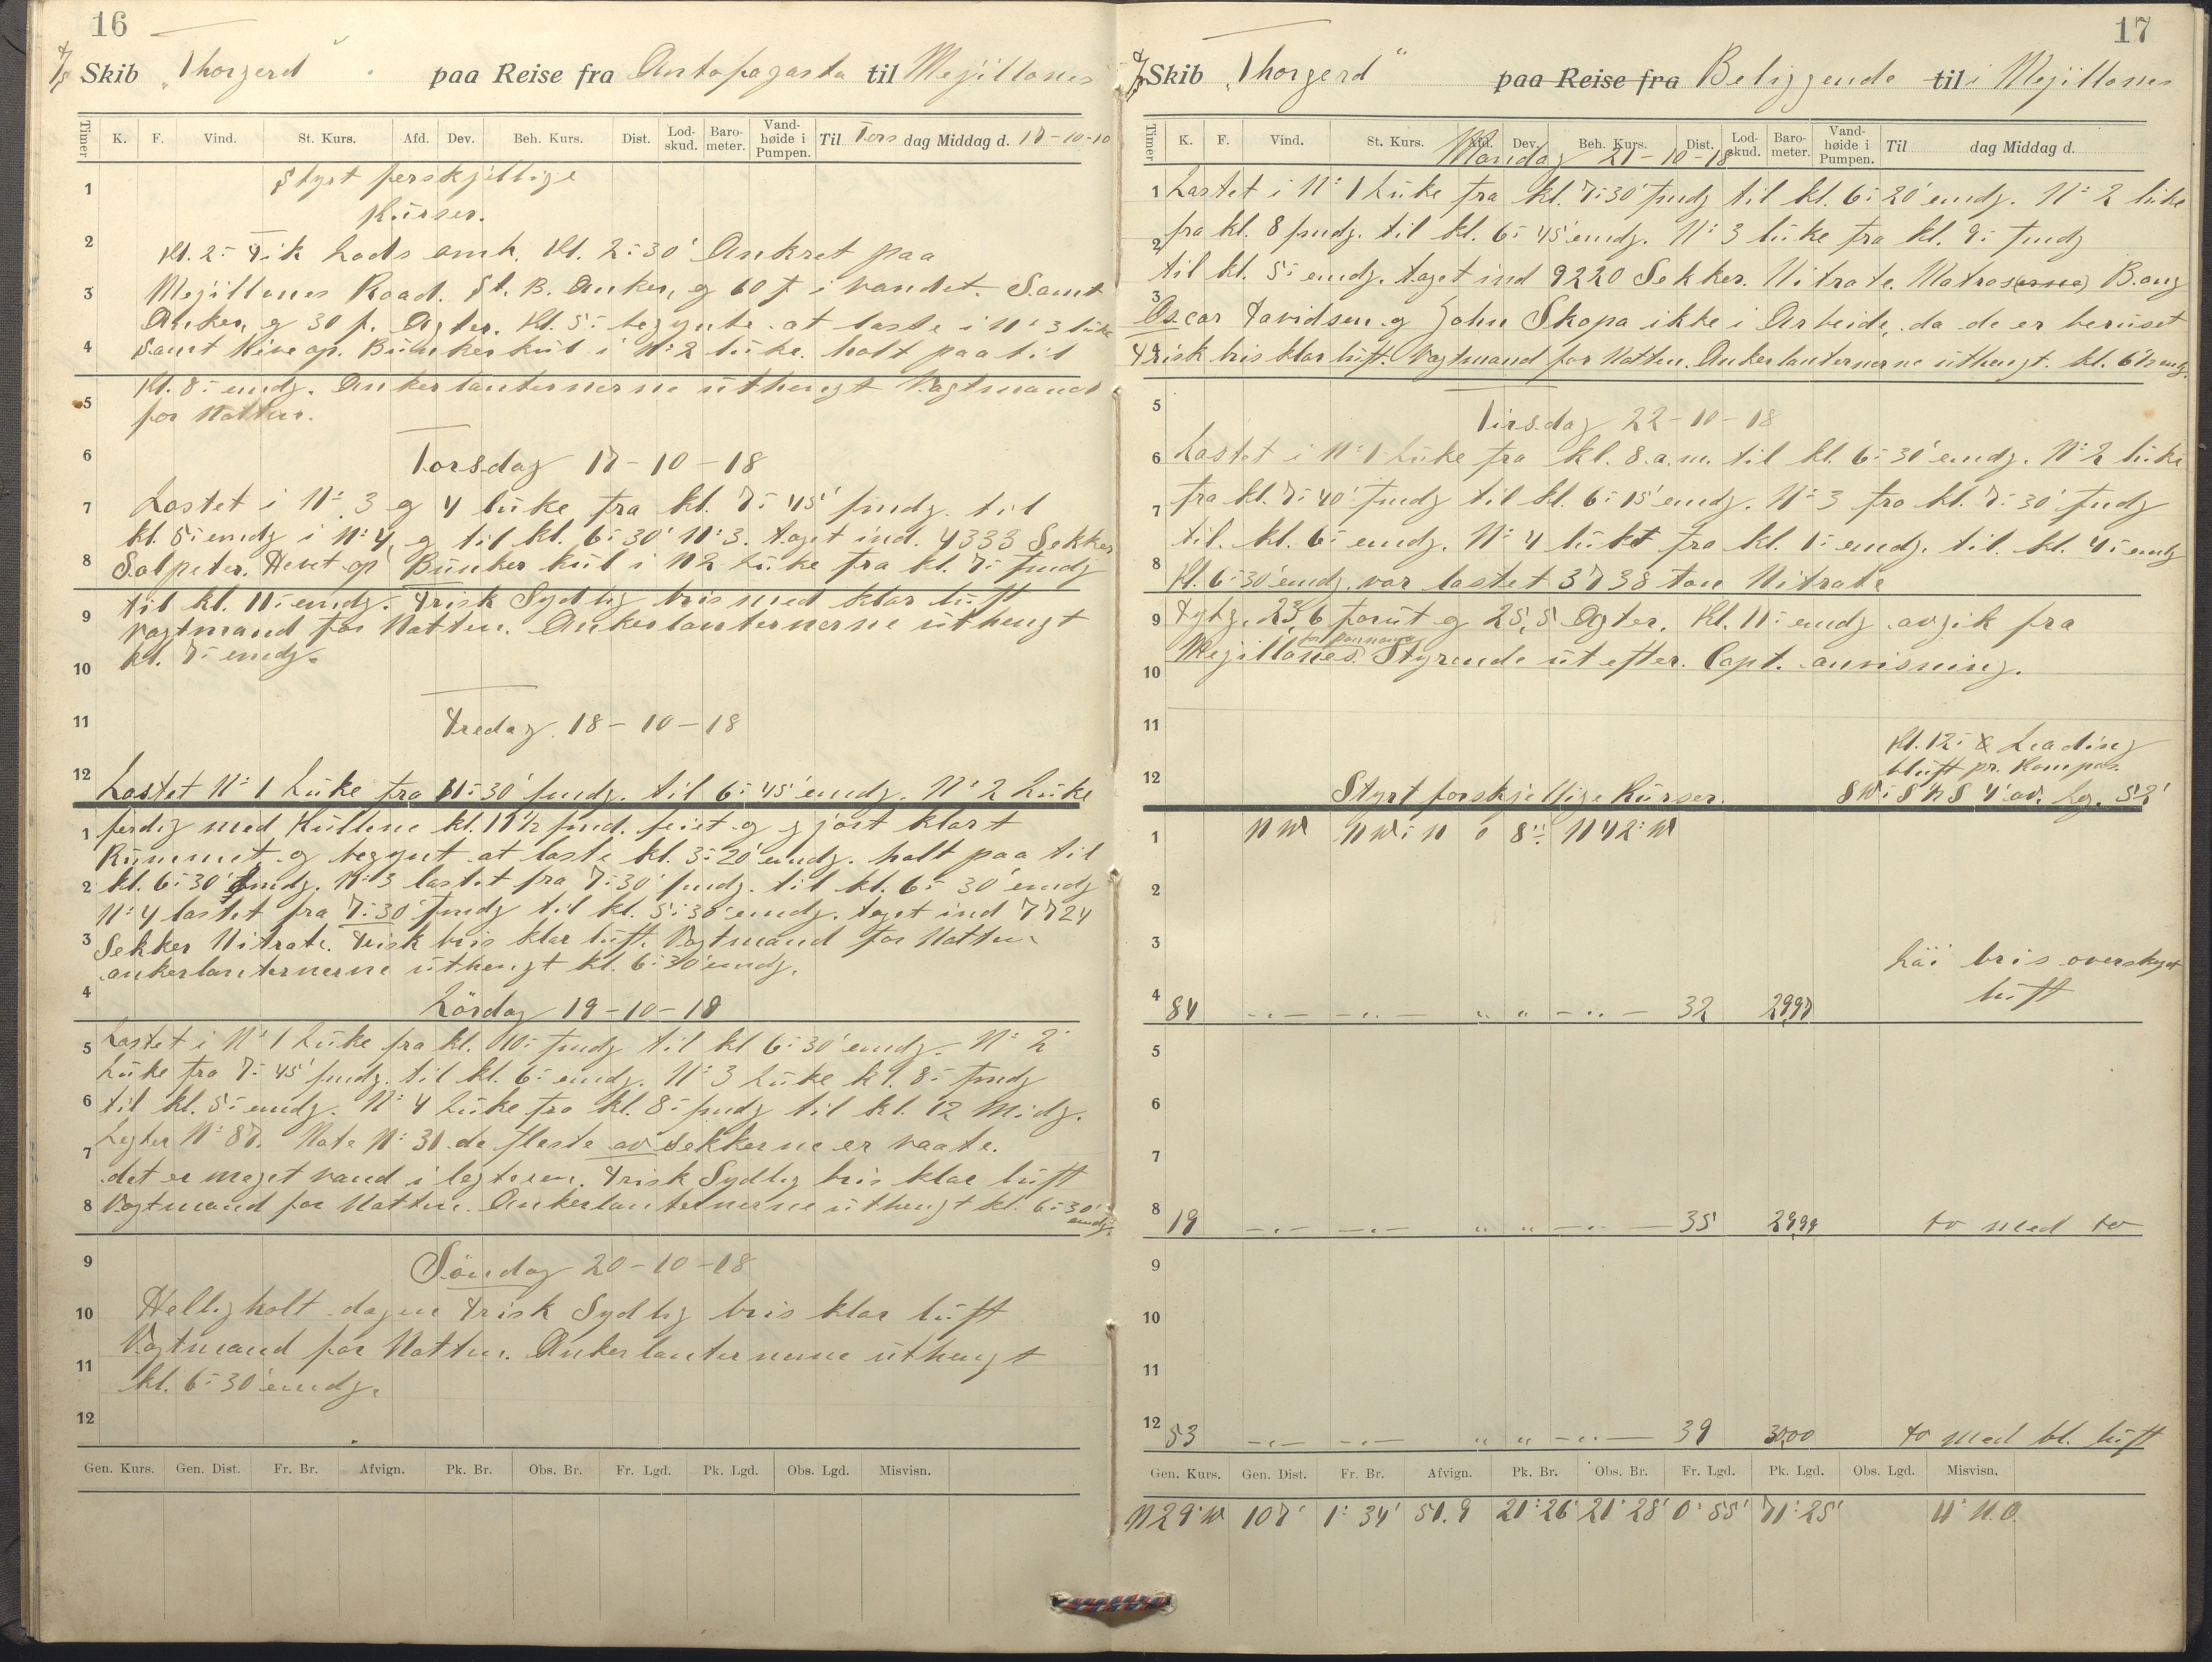 16
D/S Skib „Thorgerd" paa Reise fra Antofagasta til Mejillones
Timer K. F. Vind. St. Kurs. Afd. Dev. Beh. Kurs. Dist. Lod-skud. Baro-meter. Vand-høide i Pumpen. Til Tors dag Middag d. 17-10-18
Styrt forskjellige
Kurser.
Kl. 2:- Fik Lods omb. Kl. 2:30' Ankret paa
Mejillones Road. St. B. Anker, og 60 f i vandet. Samt
Anker, og 30 f. Agter. Kl. 5:- begynte at laste i N: 3 luke
Samt Hive op. Bunkerkul i N: 2 luke. holt paa til
Kl. 8:- emdg. Ankerlanternerne uthengt Vagtmand
for Natten.
Torsdag 17-10-18
Lastet i N: 3 og 4 luke fra kl. 7:45' fmdg. til
kl. 5:- emdg i N: 4, og til kl. 6:30' N: 3. taget ind. 4333 Sekker
Salpeter. Hevet op Bunker kul i N2 Luke fra kl. 7:- fmdg
til kl. 11:- emdg. Frisk Sydlig bris med klar luft
Vagtmand for Natten. Ankerlanternerne uthengt
kl. 7:- emdg.
Fredag 18-10-18
Lastet N: 1 Luke fra 11:30' fmdg. til 6:45' emdg. N: 2 Luke
ferdig med Kullene kl. 11½ fmd. feiet og gjort klart
Rummet og begynt at laste kl. 3:20' emdg. holt paa til
kl. 6:30' emdg. N: 3 lastet fra 7:30' fmdg. til kl. 6:30' emdg
N: 4 lastet fra 7:30' fmdg til kl. 5:30' emdg. taget ind 7724
Sekker Nitrate. Frisk bris klar luft. Vagtmand for Natten.
ankerlanternerne uthengt kl. 6:30' emdg.
Lördag 19-10-18
Lastet i N: 1 Luke fra kl. 10:- fmdg til kl 6:30' emdg. N: 2
Luke fra 7:45' fmdg. til kl. 6:- emdg. N: 3 Luke kl. 8:- fmdg
til kl. 5:- emdg. N: 4 Luke fra kl. 8:- fmdg til kl. 12 Midg.
Legter N: 87. Nate N: 31 de fleste av sekkerne er vaate.
det er meget vand i legteren. Frisk Sydlig bris klar luft
Vagtmand for Natten. Ankerlanternerne uthengt kl. 6:30' emdg.
Söndag 20-10-18
Helligholt dagen Frisk Sydlig bris klar luft
Vagtmand for Natten. Ankerlanternerne uthengt
kl. 6:30' emdg.
1
2
3
4
5
6
7
8
9
10
11
12
1
2
3
4
5
6
7
8
9
10
11
12
Gen. Kurs. Gen. Dist. Fr. Br. Afvign. Pk. Br. Obs. Br. Fr. Lgd. Pk. Lgd. Obs. Lgd. Misvisn.
17
D/S Skib „Thorgerd" paa Reise fra Beliggende til i Mejillones
Timer K. F. Vind. St. Kurs. Afd. Dev. Beh. Kurs. Dist. Lod-skud. Baro-meter. Vand-høide i Pumpen. Til dag Middag d.
Mandag 21-10-18
1 Lastet i N: 1 Luke fra kl. 7:30' fmdg til kl. 6:20' emdg. N: 2 luke
2 fra kl. 8 fmdg. til kl. 6:45' emdg. N: 3 luke fra kl. 9:- fmdg
til kl. 5:- emdg. taget ind 9220 Sekker. Nitrate. Matros(erne) Bang
3 Oscar Davidsen og John Skopa ikke i Arbeide, da de er beruset
4 Frisk bris klar luft. Vagtmand for Natten. Ankerlanternerne uthengt. kl. 6½ emdg.
5 Tirsdag 22-10-18
6 Lastet i N: 1 Luke fra kl. 8. a.m. til kl. 6:30' emdg. N: 2 luke
7 fra kl. 7:40' fmdg til kl. 6:15' emdg. N: 3 fra kl. 7:30' fmdg
til. kl. 6:- emdg. N: 4 luket fra kl. 1:- emdg. til. kl. 4:- emdg
8 Kl. 6:30' emdg. var lastet 3738 ton Nitrate
9 Dybg. 23,6 forut og 25,5 Agter. Kl. 11:- emdg avgik fra
Mejillones for Pannama Styrende ut efter. Capt. anvisning.
10
11
Kl. 12:- Leading
bluft pr. Kompas.
12 Styrt forskjellige Kurser. SWiS½S 4' av. Lg. 52'
1 NW NWiN 0 8:- N42:W
2
3
Läi bris overskyet
luft
4 84 -"- -"- " " -"- 32 29,97
5
6
7
8 19 -"- -"- " " -"- 35 29,99 to med to
9
10
11
12 53 -"- -"- " " -"- 39 30,00 to med bl. luft
Gen. Kurs. Gen. Dist. Fr. Br. Afvign. Pk. Br. Obs. Br. Fr. Lgd. Pk. Lgd. Obs. Lgd. Misvisn.
N29:W 107' 1:34' 51.9 21:26' 21:28' 0:55' 71:25' 11: N.O.